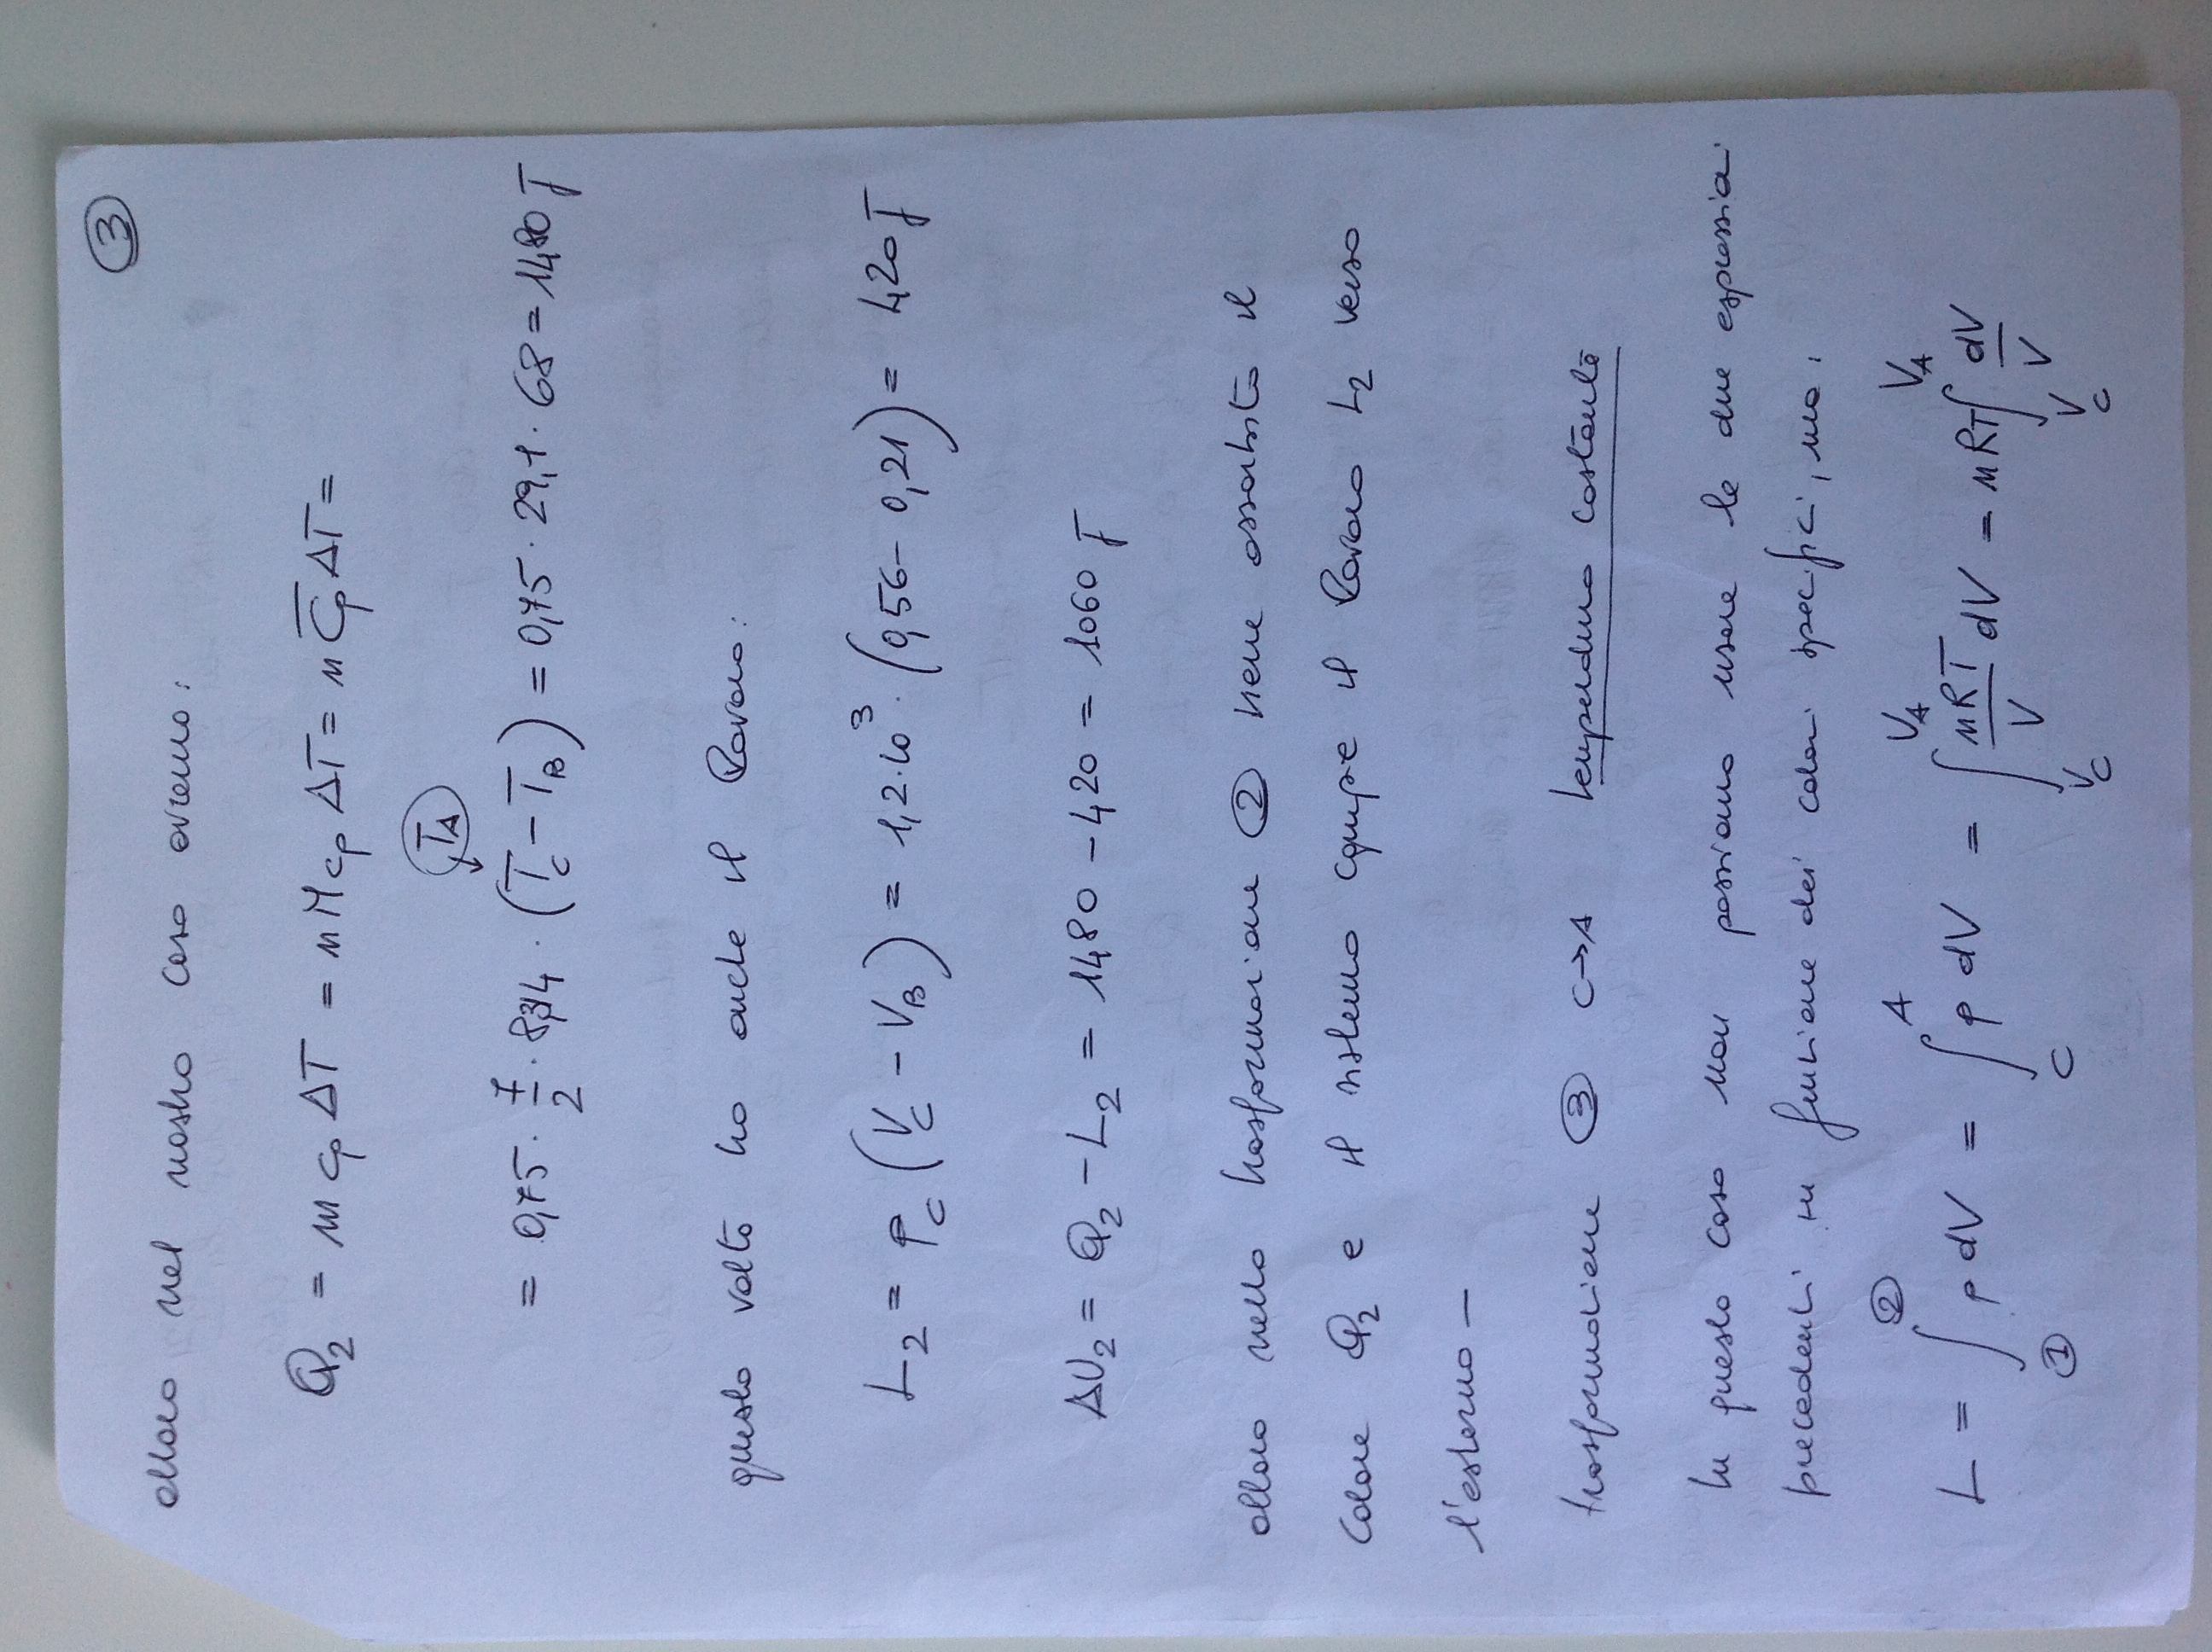 3
allora nel nostro caso avremo:
Q₂ = m cp ΔT = n M cp ΔT = n C̅p ΔT =
TA
= 0,75 · 7/2 · 8,314 · (TC − TB) = 0,75 · 29,1 · 68 = 1480 J
questa volta ho anche il lavoro:
L₂ = pC (VC − VB) = 1,2·10³ · (0,56 − 0,21) = 420 J
ΔU₂ = Q₂ − L₂ = 1480 − 420 = 1060 J
allora nella trasformazione ② viene assorbito il
calore Q₂ e il sistema compie il lavoro L₂ verso
l'esterno —
trasformazione ③ C→A temperatura costante
In questo caso non possiamo usare le due espressioni
precedenti in funzione dei calori specifici, ma:
L = ∫①② p dV = ∫CA p dV = ∫VCVA nRT/V dV = nRT ∫VCVA dV/V